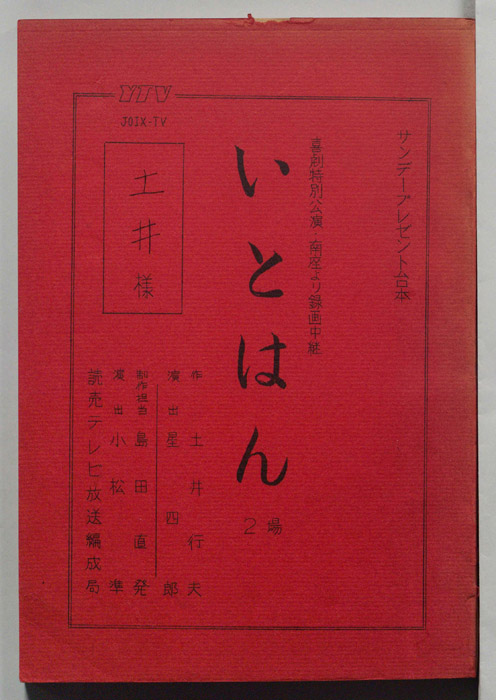 サンデープレゼント台本
喜劇特別公演・南座より録画中継
いとはん
2場
作 土井行夫
演出 星四郎
制作担当 島田直発
演出 小松準
読売テレビ放送編成局
YTV
JOIX-TV
土井様